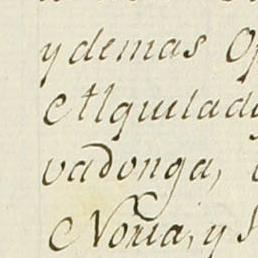 y demas Op
Alquilad
vadonga,
Noria, y S